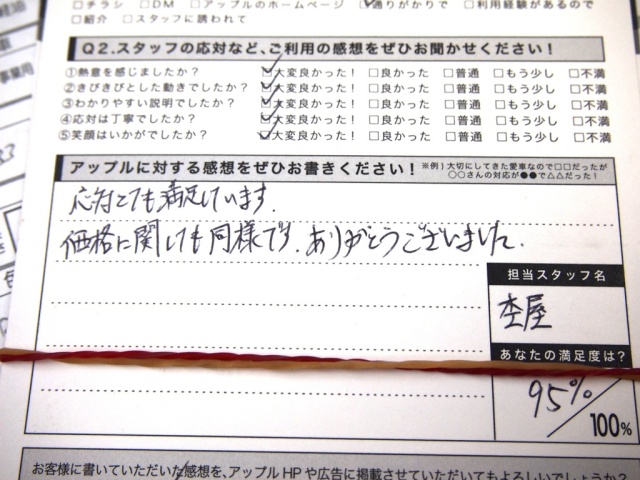 □チラシ □DM □アップルのホームページ □通りがかりで □利用経験があるので
□紹介 □スタッフに誘われて
Q2.スタッフの応対など、ご利用の感想をぜひお聞かせください!
①熱意を感じましたか? □大変良かった! □良かった □普通 □もう少し □不満
②きびきびとした動きでしたか? □大変良かった! □良かった □普通 □もう少し □不満
③わかりやすい説明でしたか? □大変良かった! □良かった □普通 □もう少し □不満
④応対は丁寧でしたか? □大変良かった! □良かった □普通 □もう少し □不満
⑤笑顔はいかがでしたか? □大変良かった! □良かった □普通 □もう少し □不満
アップルに対する感想をぜひお書きください!
※例)大切にしてきた愛車なので□□だったが
○○さんの対応が●●で△△だった!
応対とても満足しています.
価格に関しても同様です.ありがとうございました.
担当スタッフ名
杢屋
あなたの満足度は?
95%
100%
お客様に書いていただいた感想を、アップルHPや広告に掲載させていただいてもよろしいでしょうか?